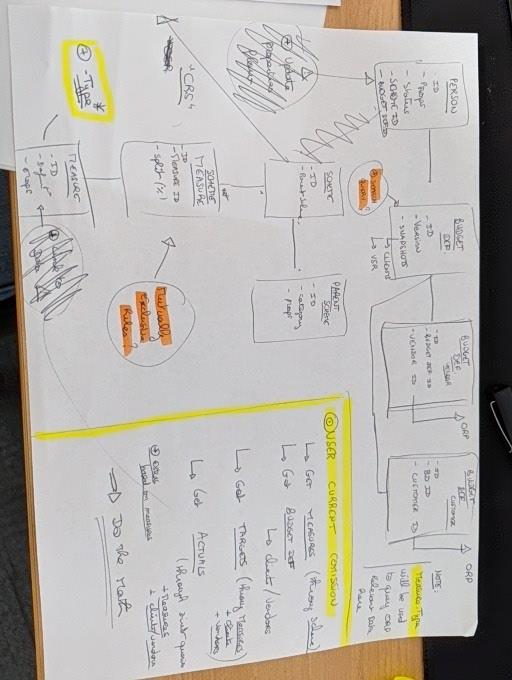 PERSON
- ID
- Props
- Status
- SCHEME ID
- BUDGET DEF ID
BUDGET
DEF.
- ID
- VERSION
- SNAPSHOTS
↳ CLIENTS
↳ VSR
BUDGET
DEF.
VENDOR
- ID
- BUDGET DEF ID
- VENDOR ID
ORP
BUDGET
DEF
CUSTOMER
- ID
- BD ID
- CUSTOMER ID
ORP
NOTE:
Measure-Type
will be used
to query ORP
Relevant Data
Here
SCHEME
- ID
- Parent Scheme
PARENT
SCHEME
- ID
- category
- props
+ Update
properties
"CRS"
SCHEME
MEASURE
- ID
- MEASURE ID
- split (%)
Mutually
Exclusive
Rules?
+ - Type *
MEASURE
- ID
- props
+ Link to
Data
USER CURRENT COMISSION
↳ GET MEASURES (throug Scheme)
↳ Get BUDGET DEF
↳ clients/vendors
↳ Get TARGETS (throug Measures)
+ clients
+ vendors
↳ Get ACTUALS
(through queries
+ Measures
+ clients/vendors
based on measures
⇒ Do The Math